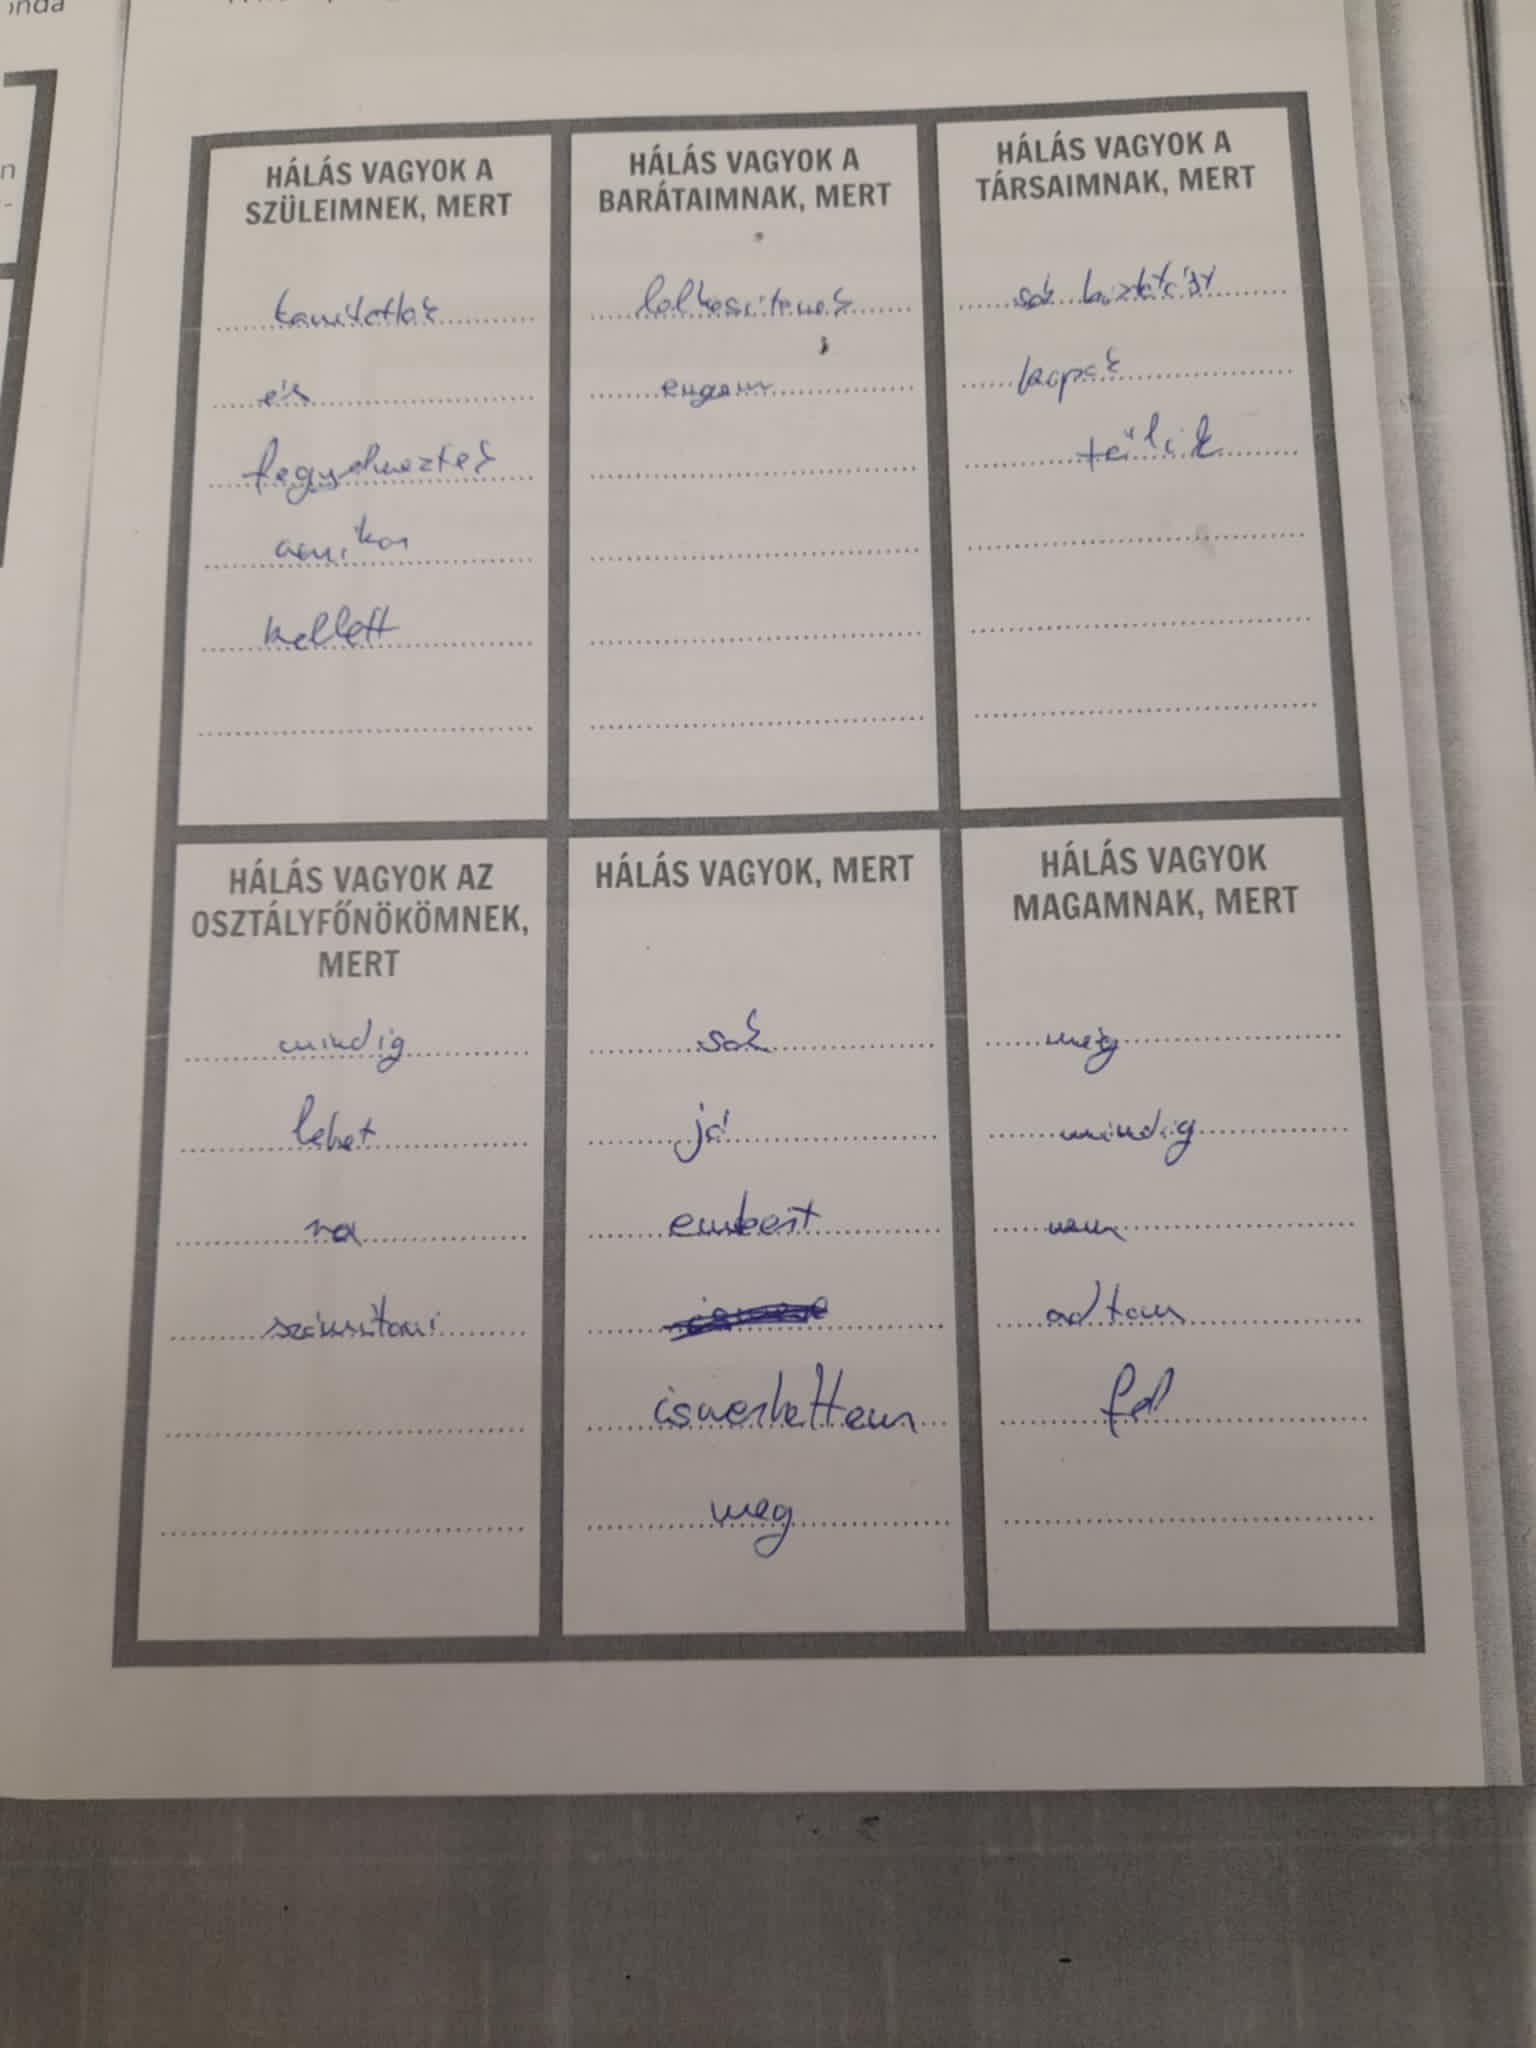 HÁLÁS VAGYOK A
SZÜLEIMNEK, MERT
tanítottak
és
fegyelmeztek
amikor
kellett
HÁLÁS VAGYOK A
BARÁTAIMNAK, MERT
lelkesítenek
engem
HÁLÁS VAGYOK A
TÁRSAIMNAK, MERT
sok biztatást
kapok
tőlük
HÁLÁS VAGYOK AZ
OSZTÁLYFŐNÖKÖMNEK,
MERT
mindig
lehet
rá
számítani
HÁLÁS VAGYOK, MERT
sok
jó
embert
ismerhettem
meg
HÁLÁS VAGYOK
MAGAMNAK, MERT
még
mindig
nem
adtam
fel